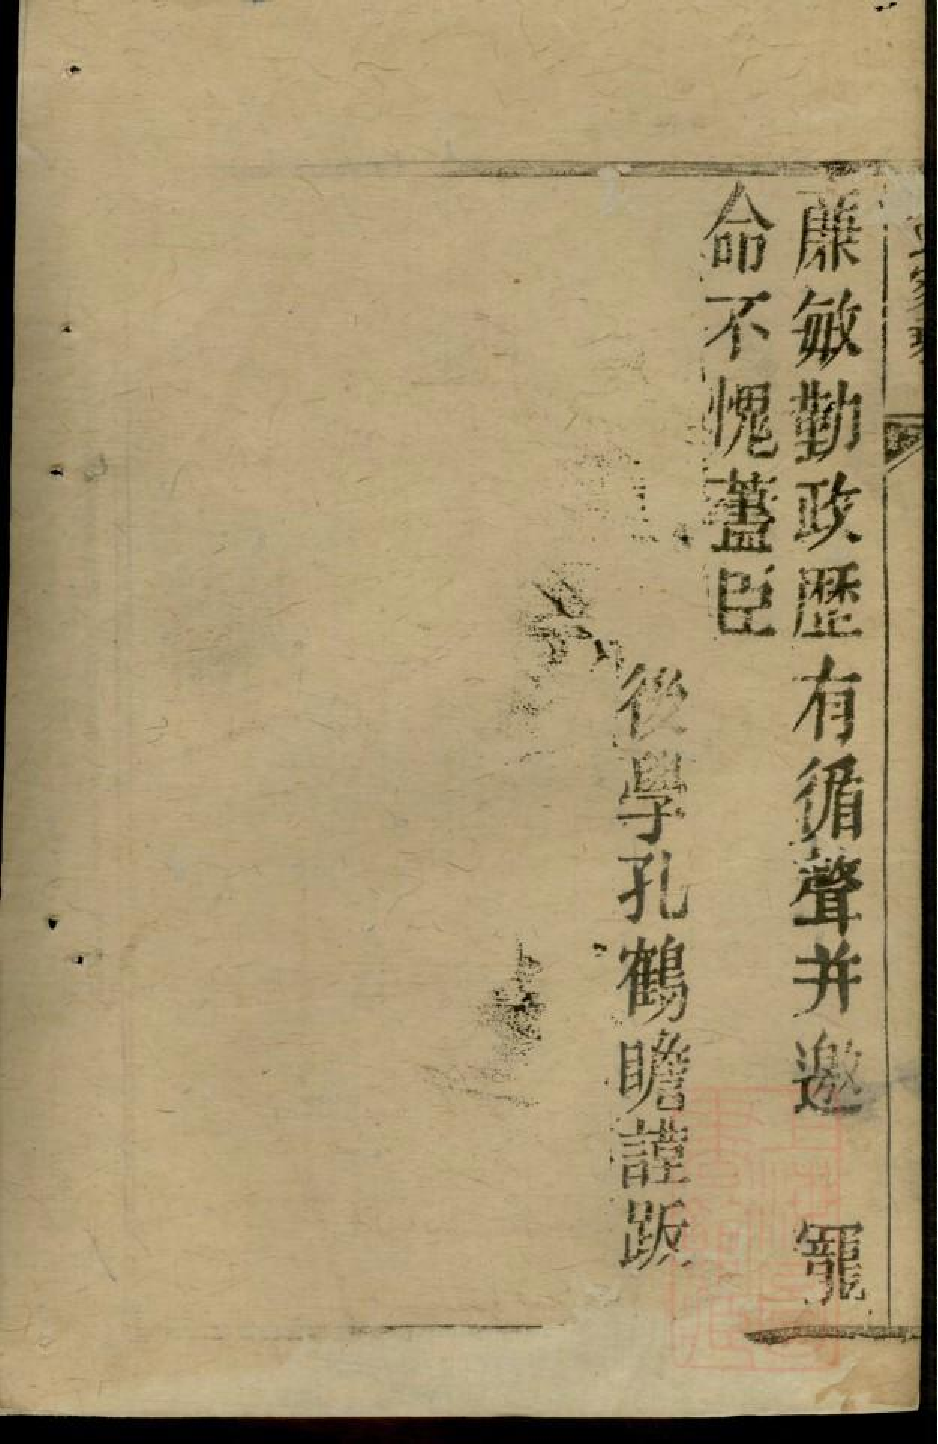 廉敏勤政歷有循聲并邀　寵
命不愧藎臣
後學孔鶴瞻謹跋